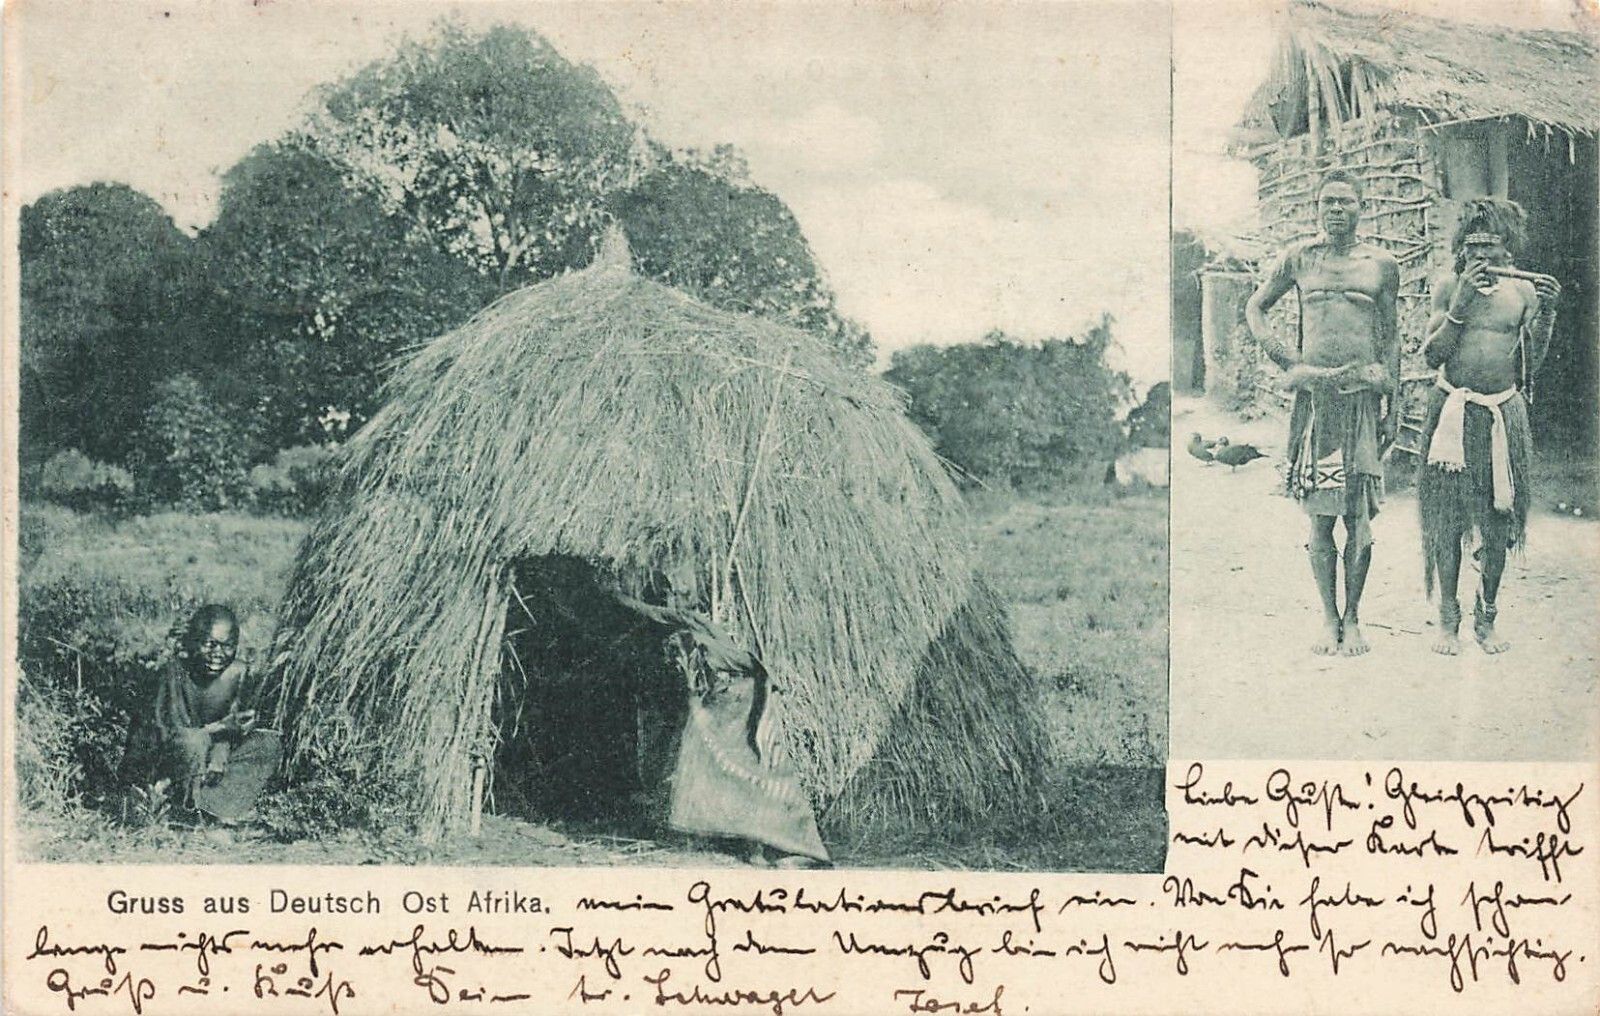 Liebe Guste! Gleichzeitig
mit dieser Karte trifft
Gruss aus Deutsch Ost Afrika.
mein Gratulationsbrief ein. Von Dir habe ich schon
lange nichts mehr erhalten. Jetzt nach dem Umzug bin ich nicht mehr so nachsichtig.
Gruß u. Kuß Dein tr. Schwager Josef.